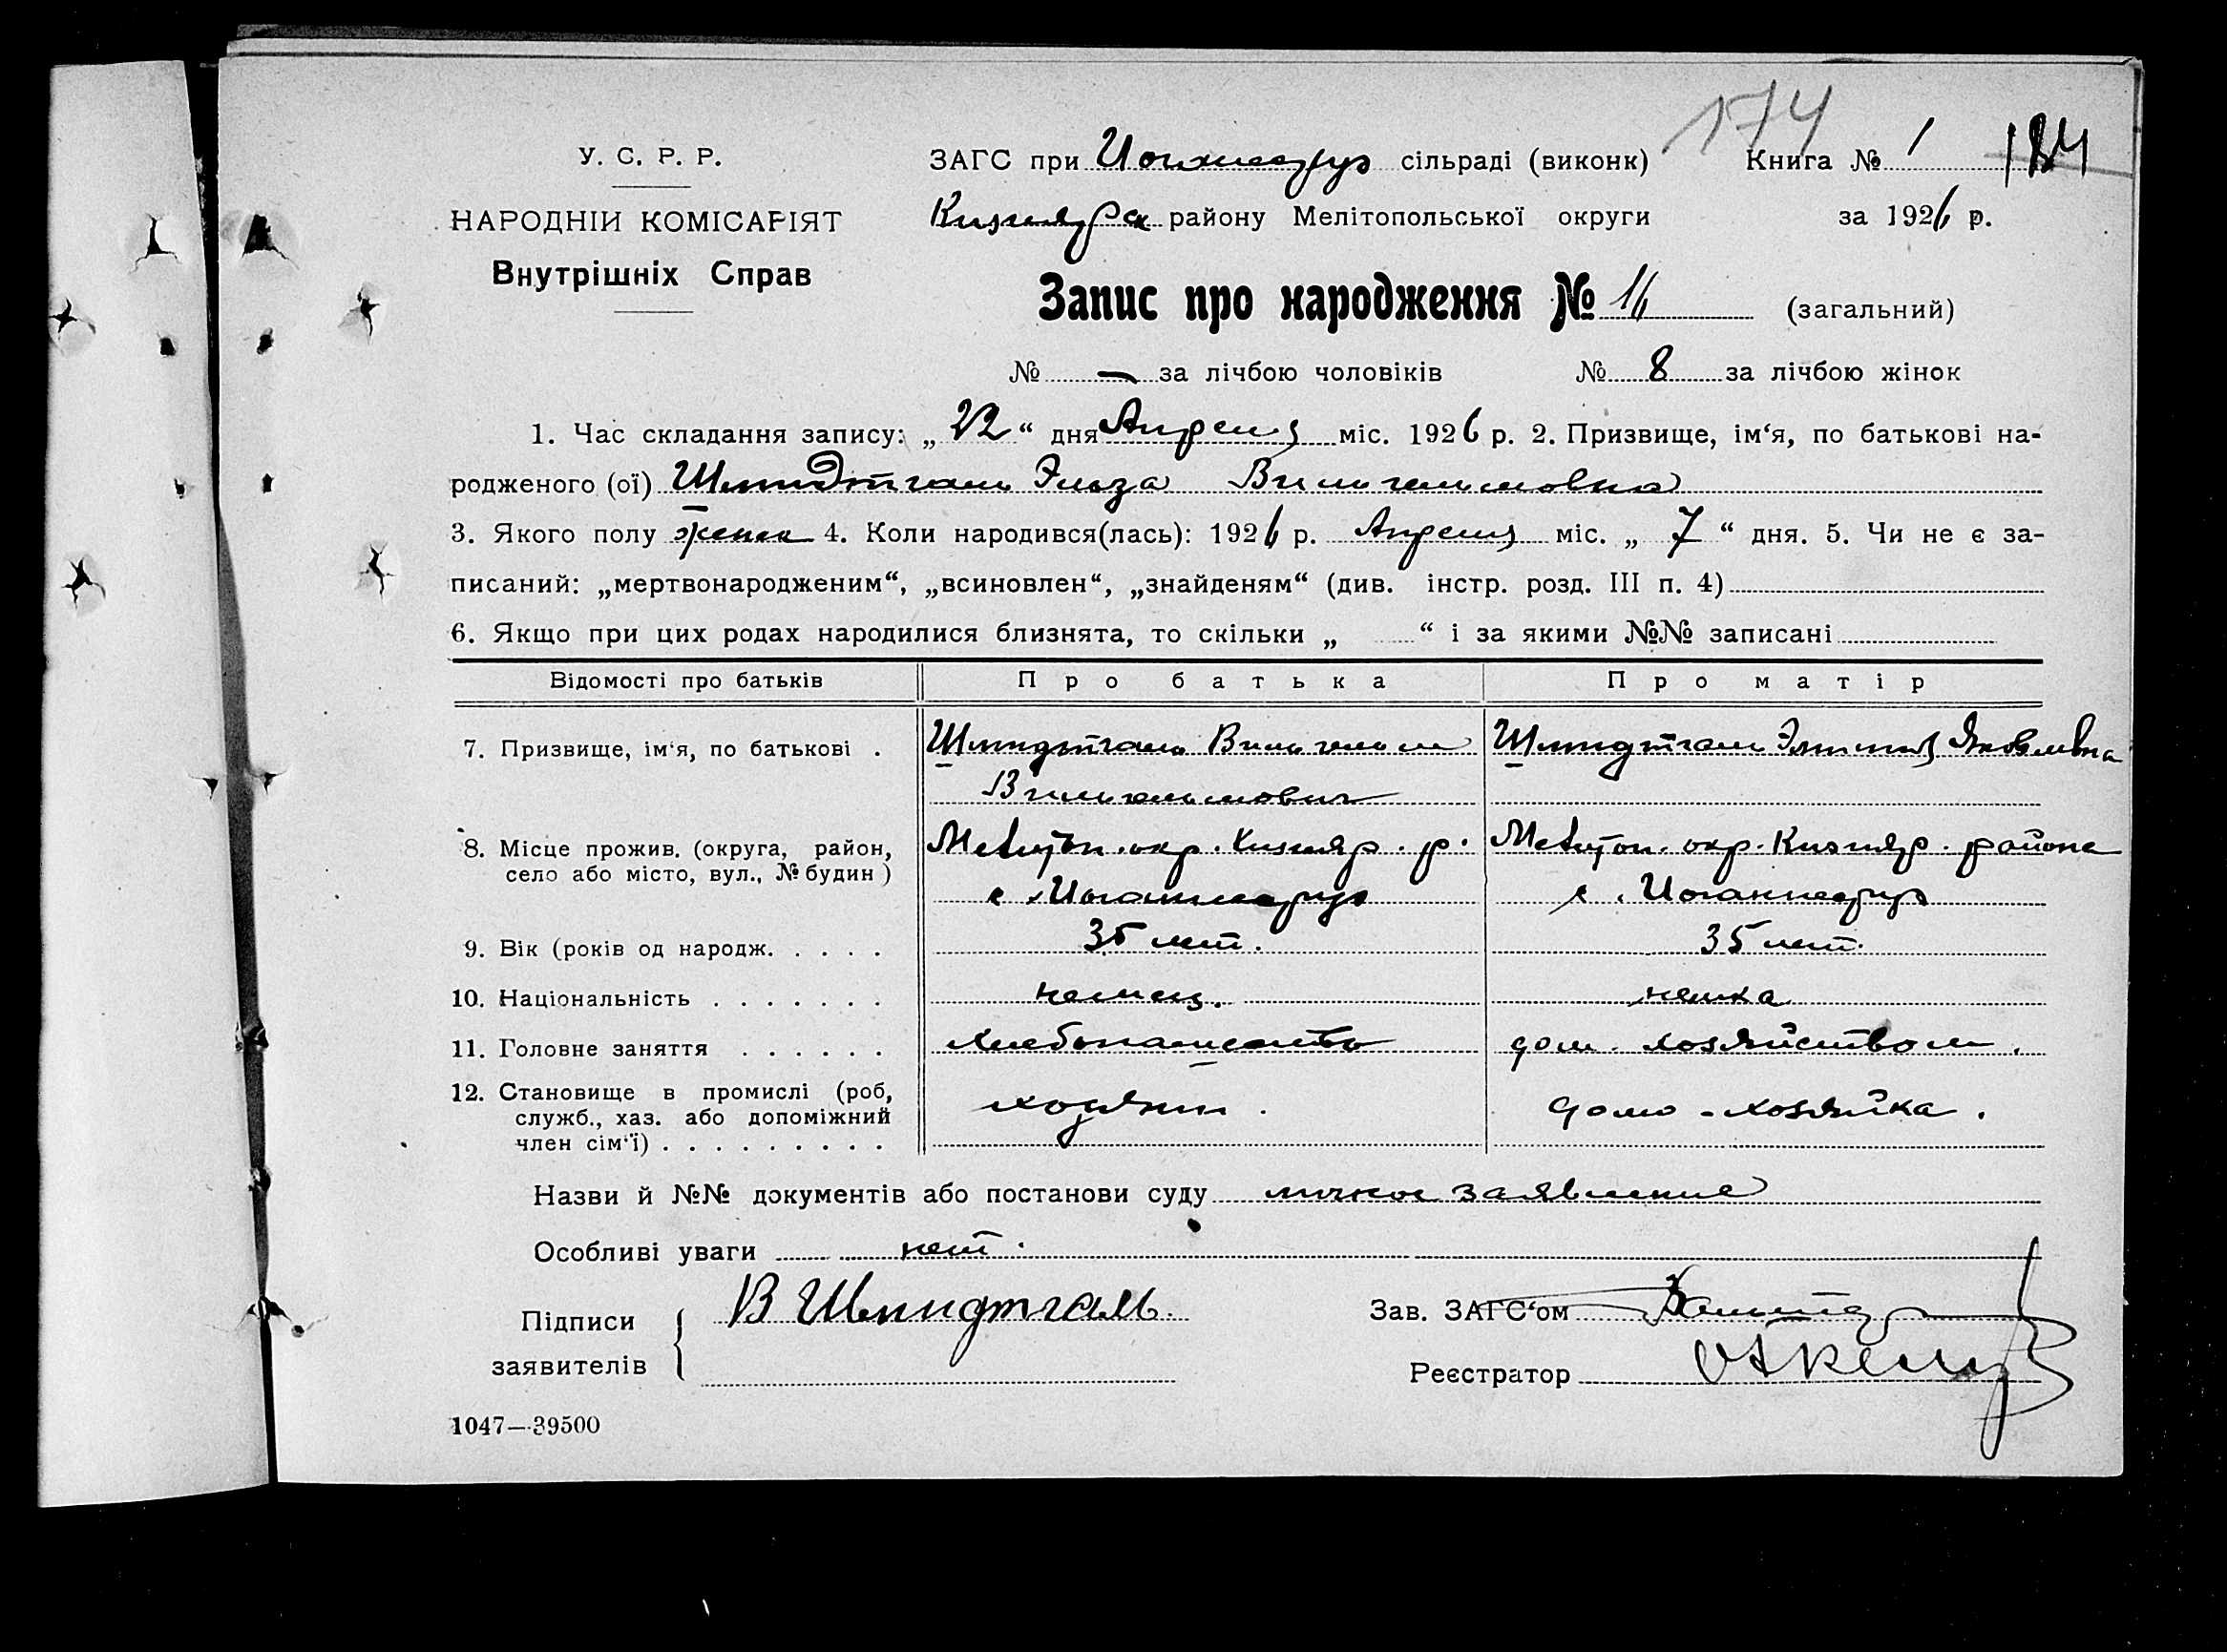 174
У. С. Р. Р.
ЗАГС при сільраді (виконк) Книга № 1 184
НАРОДНІЙ КОМІСАРІЯТ
району Мелітопольської округи за 1926 р.
Внутрішніх Справ
Запис про народження № 16 (загальний)
№ — за лічбою чоловіків № 8 за лічбою жінок
1. Час складання запису: „ 22 “ дня Апреля міс. 1926 р. 2. Призвище, ім‘я, по батькові на-
родженого (ої) Шмидтгаль Эльза Вильгельмовна
3. Якого полу женск 4. Коли народився(лась): 1926 р. Апреля міс. „ 7 “ дня. 5. Чи не є за-
писаний: „мертвонародженим“, „всиновлен“, „знайденям“ (див. інстр. розд. III п. 4)
6. Якщо при цих родах народилися близнята, то скільки „ “ і за якими №№ записані
Відомості про батьків Про батька Про матір
7. Призвище, ім‘я, по батькові . Шмидтгаль Вильгельм Шмидтгаль Яковлевна
Вильгельмович
8. Місце прожив. (округа, район, Мелитоп. окр. Кизияр. р. Мелитоп. окр. Кизияр. района
село або місто, вул., № будин) с. Иоганнесруэ с. Иоганнесруэ
9. Вік (років од народж. . . . . 35 лет. 35 лет.
10. Національність . . . . . . . немец. немка
11. Головне заняття . . . . . . хлебопашество дом. хозяйством.
12. Становище в промислі (роб, хозяин. домо-хозяйка.
служб., хаз. або допоміжний
член сім‘ї) . . . . . . . . .
Назви й №№ документів або постанови суду личное заявление
Особливі уваги нет.
Підписи В Шмидтгаль. Зав. ЗАГС‘ом
заявителів Реєстратор
1047—39500